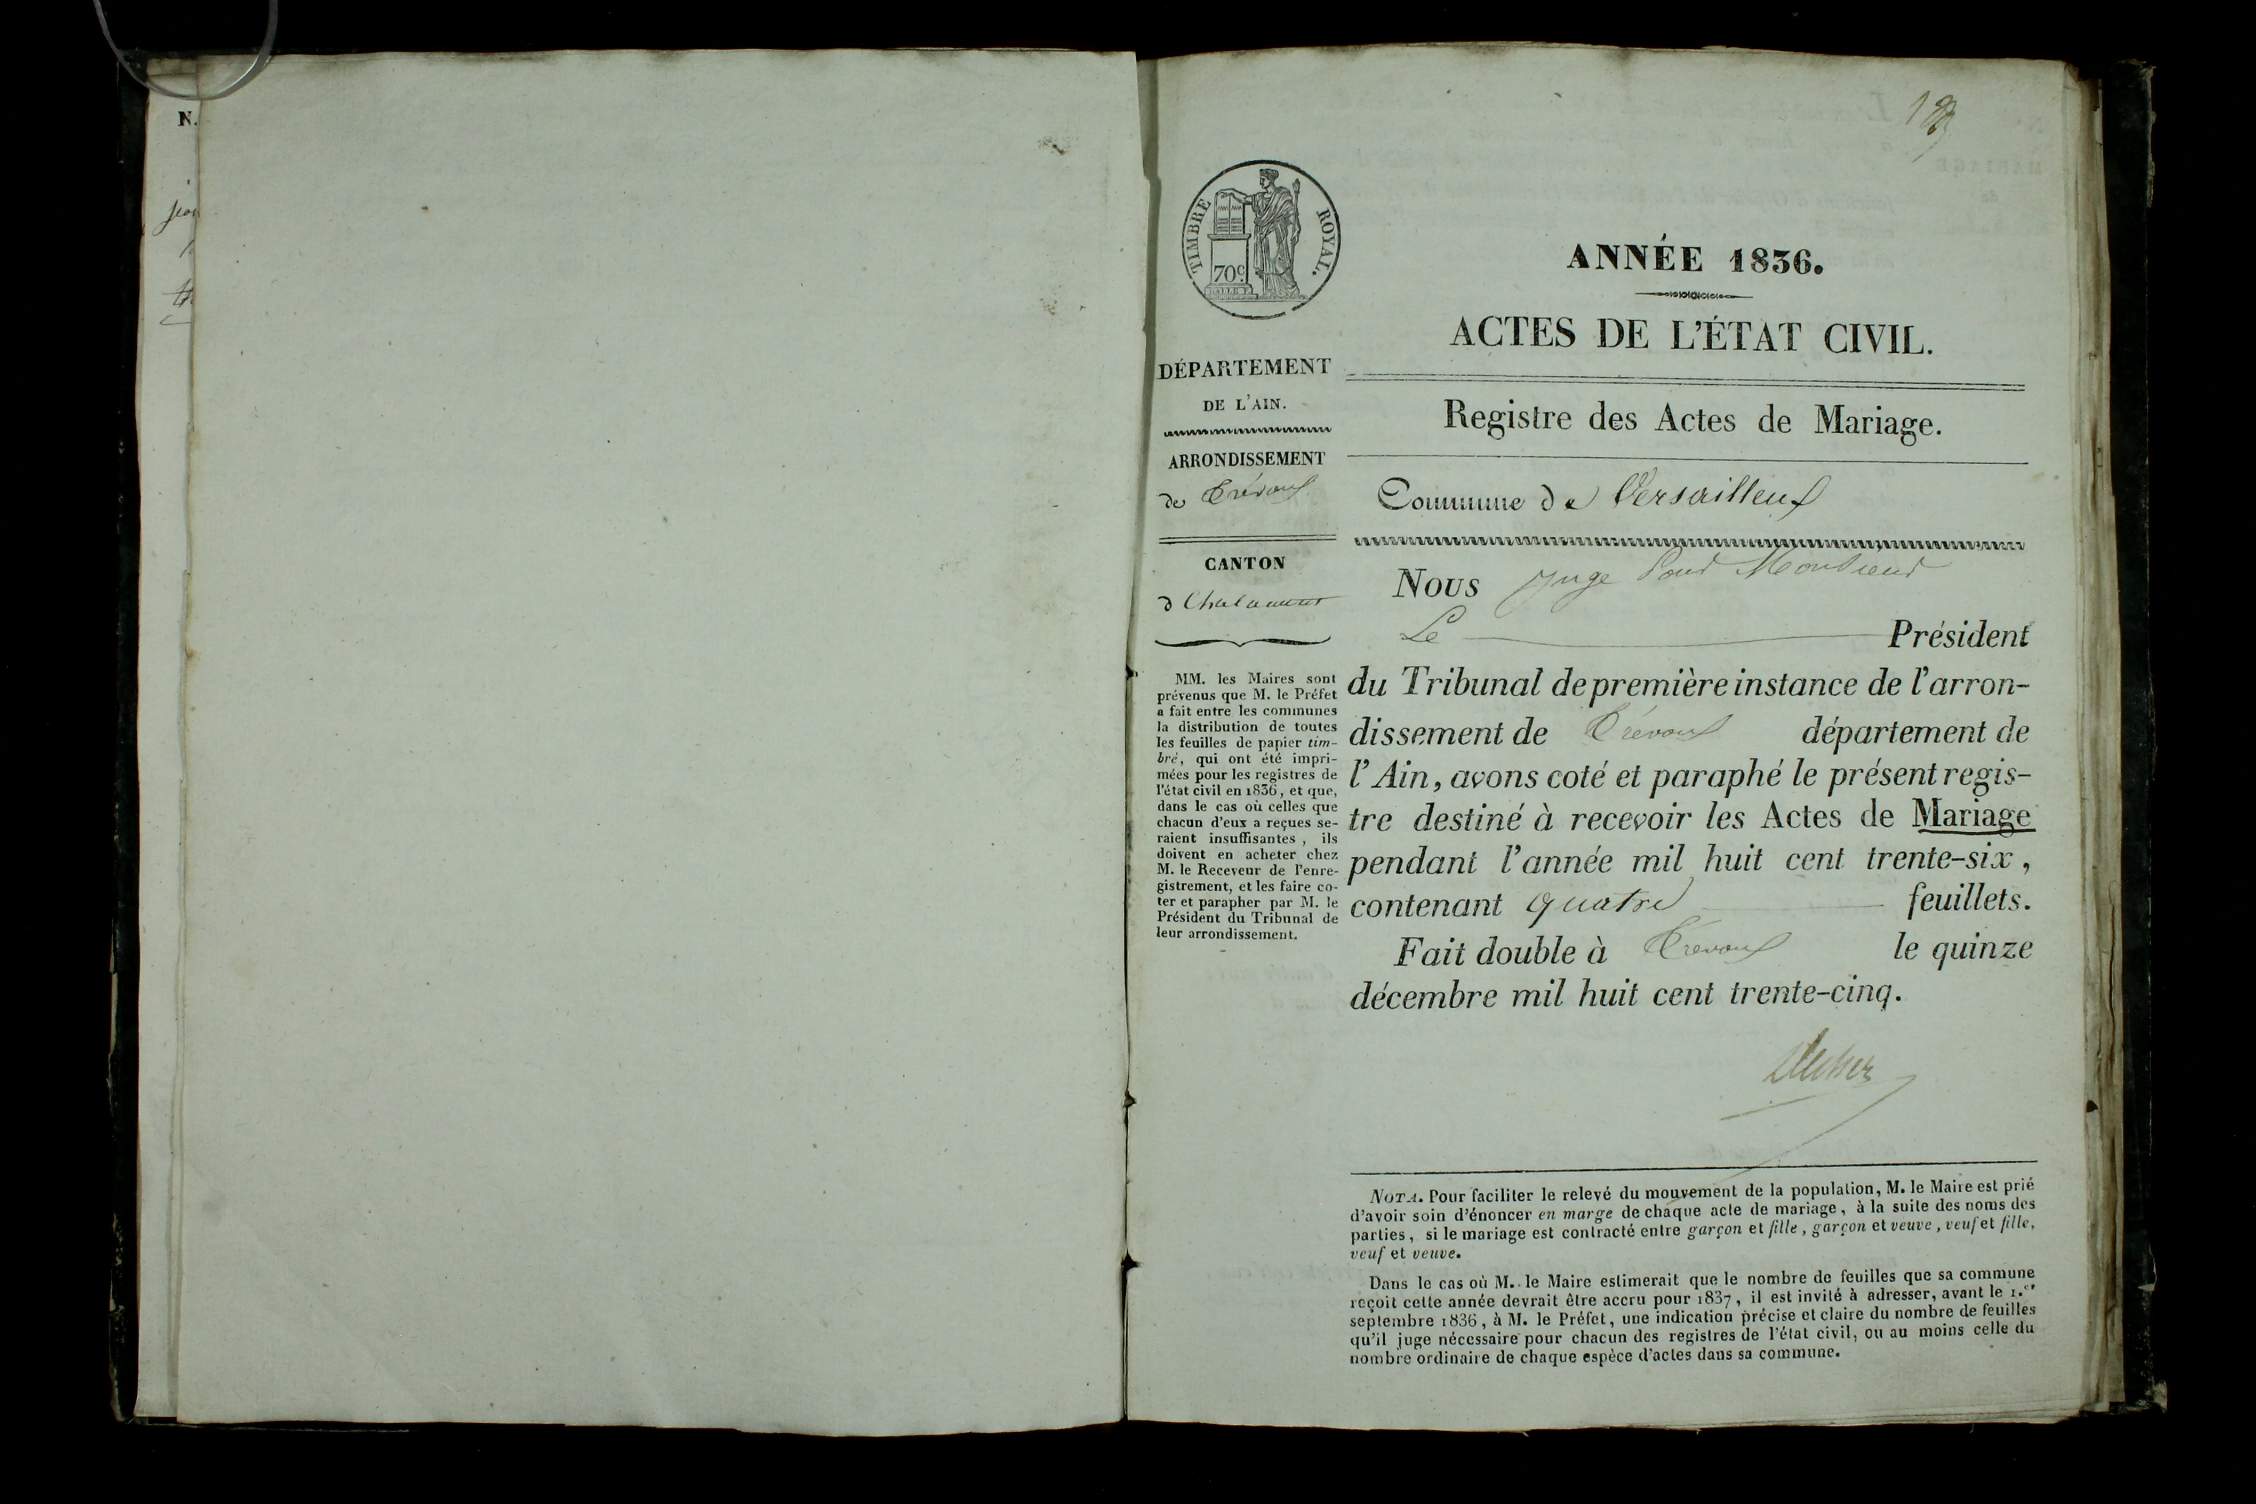 N.
TIMBRE ROYAL.
70 C
DÉPARTEMENT
DE L'AIN.
ARRONDISSEMENT
de Trévoux
CANTON
d Chalamont
MM. les Maires sont
prévenus que M. le Préfet
a fait entre les communes
la distribution de toutes
les feuilles de papier tim-
bré, qui ont été impri-
mées pour les registres de
l'état civil en 1836, et que,
dans le cas où celles que
chacun d'eux a reçues se-
raient insuffisantes, ils
doivent en acheter chez
M. le Receveur de l'enre-
gistrement, et les faire co-
ter et parapher par M. le
Président du Tribunal de
leur arrondissement.
ANNÉE 1836.
ACTES DE L'ÉTAT CIVIL.
Registre des Actes de Mariage.
Commune de Versailleux
Nous juge Pour Monsieur
Le Président
du Tribunal de première instance de l'arron-
dissement de Trévoux département de
l'Ain, avons coté et paraphé le présent regis-
tre destiné à recevoir les Actes de Mariage
pendant l'année mil huit cent trente-six,
contenant quatre feuillets.
Fait double à Trevoux le quinze
décembre mil huit cent trente-cinq.
NOTA. Pour faciliter le relevé du mouvement de la population, M. le Maire est prié
d'avoir soin d'énoncer en marge de chaque acte de mariage, à la suite des noms des
parties, si le mariage est contracté entre garçon et fille, garçon et veuve, veuf et fille,
veuf et veuve.
Dans le cas où M. le Maire estimerait que le nombre de feuilles que sa commune
reçoit cette année devrait être accru pour 1837, il est invité à adresser, avant le 1.er
septembre 1836, à M. le Préfet, une indication précise et claire du nombre de feuilles
qu'il juge nécessaire pour chacun des registres de l'état civil, ou au moins celle du
nombre ordinaire de chaque espèce d'actes dans sa commune.